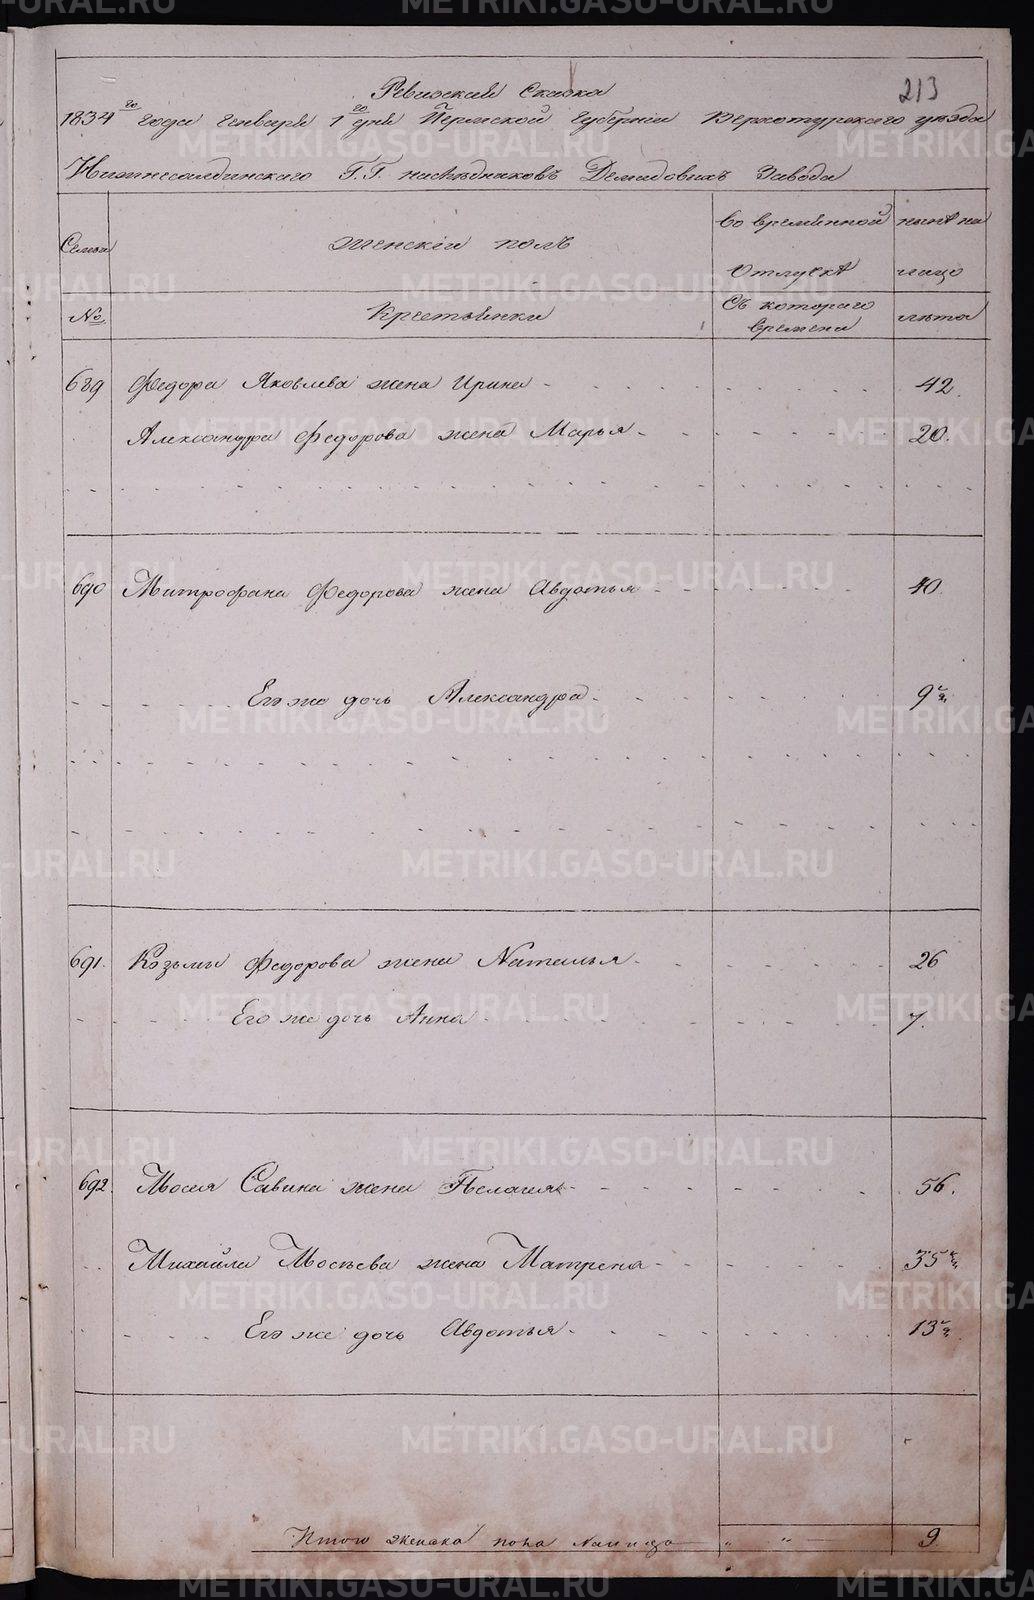 213
Ревизская Сказка
1834го года Генваря 1го дня Пермской Губернии Верхотурского уезда
Нижнесалдинского Г.Г. наследниковъ Демидовыхъ Завода
Семьи
женскiй полъ
во временной отлучкѣ
нынѣ на лицо
№
Крестьянки
Съ котораго времени
лѣта
689 Федора Яковлева жена Ирина 42.
Александра Федорова жена Марья 20.
690 Митрофана Федорова жена Авдотья 40.
Его же дочь Александра 9
691. Козьмы Федорова жена Наталья 26
Его же дочь Анна 7.
692. Мосея Савина жена Пелагия 56.
Михайла Мосѣева жена Матрена 35
Его же дочь Авдотья 13
Итого женска пола налицо „ „ 9.
METRIKI.GASO-URAL.RU